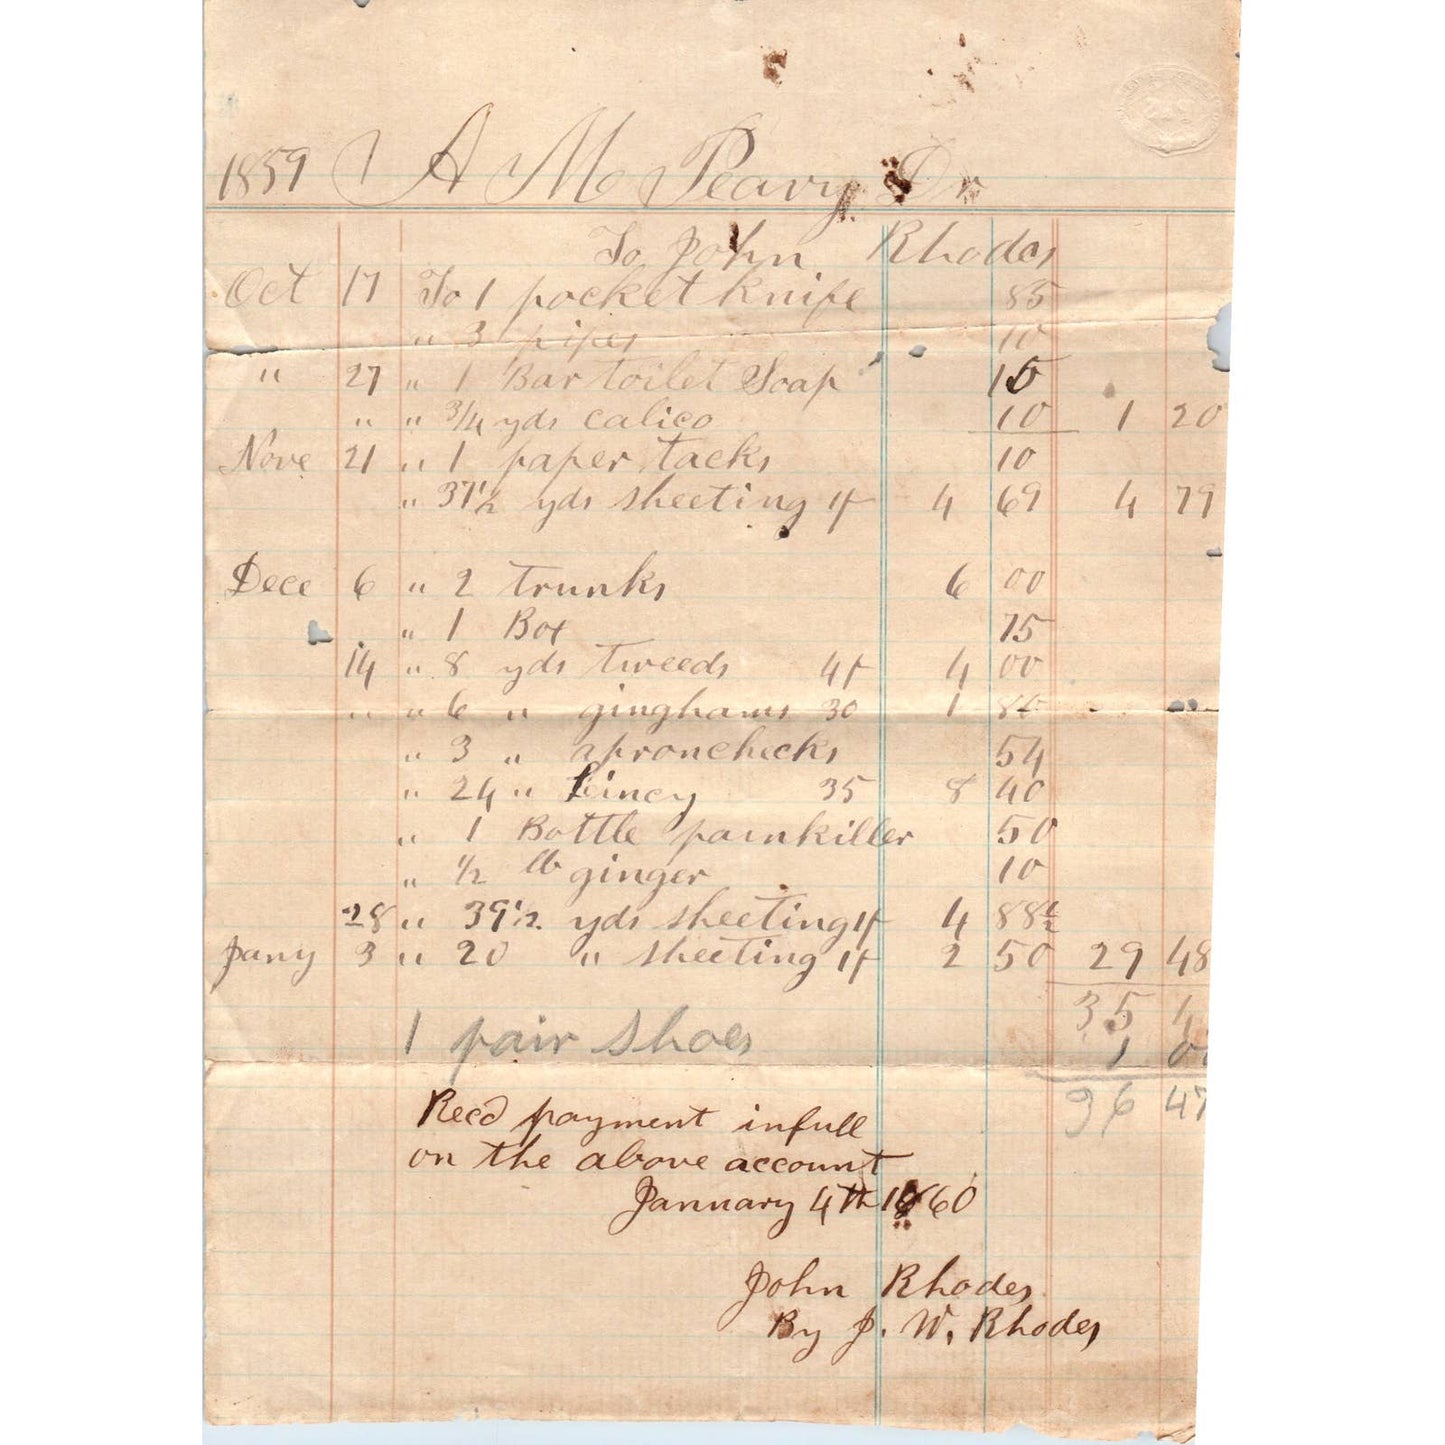 1859 A M Peavy Dr
To John Rhodes
Oct 17 To 1 pocket knife 85
" 3 pipes 10
" 27 " 1 Bar toilet Soap 15
" " 3/4 yds calico 10 1 20
Nove 21 " 1 paper tacks 10
" 37 1/2 yds sheeting 4 69 4 79
Dece 6 " 2 trunks 6 00
" 1 Box 75
14 " 8 yds tweeds 4 00
" " 6 " ginghams 30 1 80
" 3 " apronchecks 54
" 24 " Lincy 35 8 40
" 1 Bottle painkiller 50
" 1/2 lb ginger 10
28 " 39 1/2 yds sheeting 4 88
Jany 3 " 20 " sheeting 2 50 29 48
35
1 pair shoes 1 00
36 47
Recd payment in full
on the above account
January 4th 1860
John Rhodes
By J. W. Rhodes